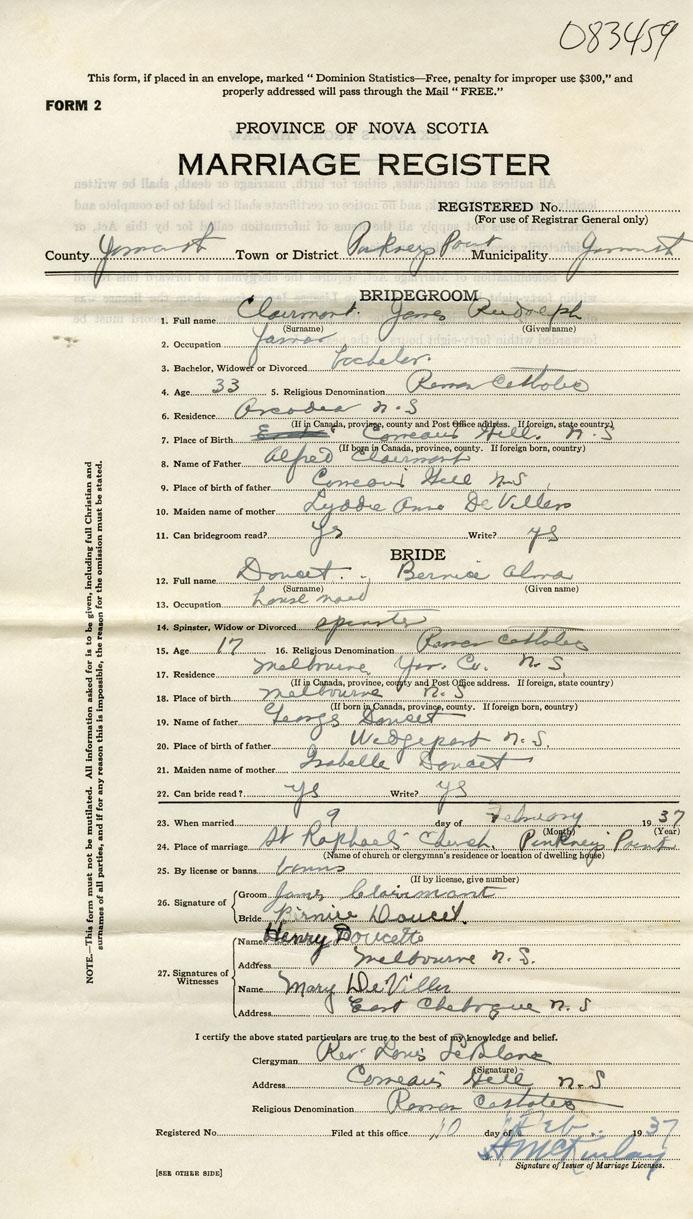 083459
This form, if placed in an envelope, marked "Dominion Statistics—Free, penalty for improper use $300," and
properly addressed will pass through the Mail "FREE."
FORM 2
PROVINCE OF NOVA SCOTIA
MARRIAGE REGISTER
REGISTERED No.
(For use of Registrar General only)
County Yarmouth Town or District Pinkneys Point Municipality Yarmouth
BRIDEGROOM
1. Full name Clairmont James Rudolph
(Surname) (Given name)
2. Occupation Farmer
3. Bachelor, Widower or Divorced bachelor
4. Age 33 5. Religious Denomination Roman Catholic
6. Residence Arcadia N.S
(If in Canada, province, county and Post Office address. If foreign, state country)
7. Place of Birth Comeaus Hill. N.S
(If born in Canada, province, county. If foreign born, country)
8. Name of Father Alfred Clairmont
9. Place of birth of father Comeaus Hill N.S
10. Maiden name of mother Lyddie Anne DeVillers
11. Can bridegroom read? Yes Write? yes
BRIDE
12. Full name Doucet. Bernice Alma
(Surname) (Given name)
13. Occupation house maid
14. Spinster, Widow or Divorced spinster
15. Age 17 16. Religious Denomination Roman Catholic
17. Residence Melbourne Yar. Co. N.S
(If in Canada, province, county and Post Office address. If foreign, state country)
18. Place of birth Melbourne N.S
(If born in Canada, province, county. If foreign born, country)
19. Name of father George Doucet
20. Place of birth of father Wedgeport N.S.
21. Maiden name of mother Isabelle Doucet
22. Can bride read? yes Write? yes
23. When married 9 day of February 1937
(Month) (Year)
24. Place of marriage St Raphael's Church, Pinkney's Point
(Name of church or clergyman's residence or location of dwelling house)
25. By license or banns banns
(If by license, give number)
26. Signature of
Groom James Clairmont
Bride Bernice Doucet.
27. Signatures of Witnesses
Name Henry Doucette
Address Melbourne N.S.
Name Mary DeViller
Address East Chebogue N.S
I certify the above stated particulars are true to the best of my knowledge and belief.
Clergyman Rev. Louis LeBlanc
(Signature)
Address Comeau's Hill N.S
Religious Denomination Roman Catholic
Registered No. Filed at this office 10 day of Feb. 1937
H McKinlay
Signature of Issuer of Marriage Licenses.
[SEE OTHER SIDE]
NOTE.—This form must not be mutilated. All information asked for is to be given, including full Christian and
surnames of all parties, and if for any reason this is impossible, the reason for the omission must be stated.